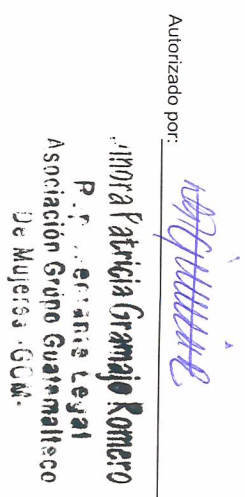 Autorizado por:
Patricia Gramajo Romero
Legal
Asociación Grupo Guatemalteco
De Mujeres -GGM-